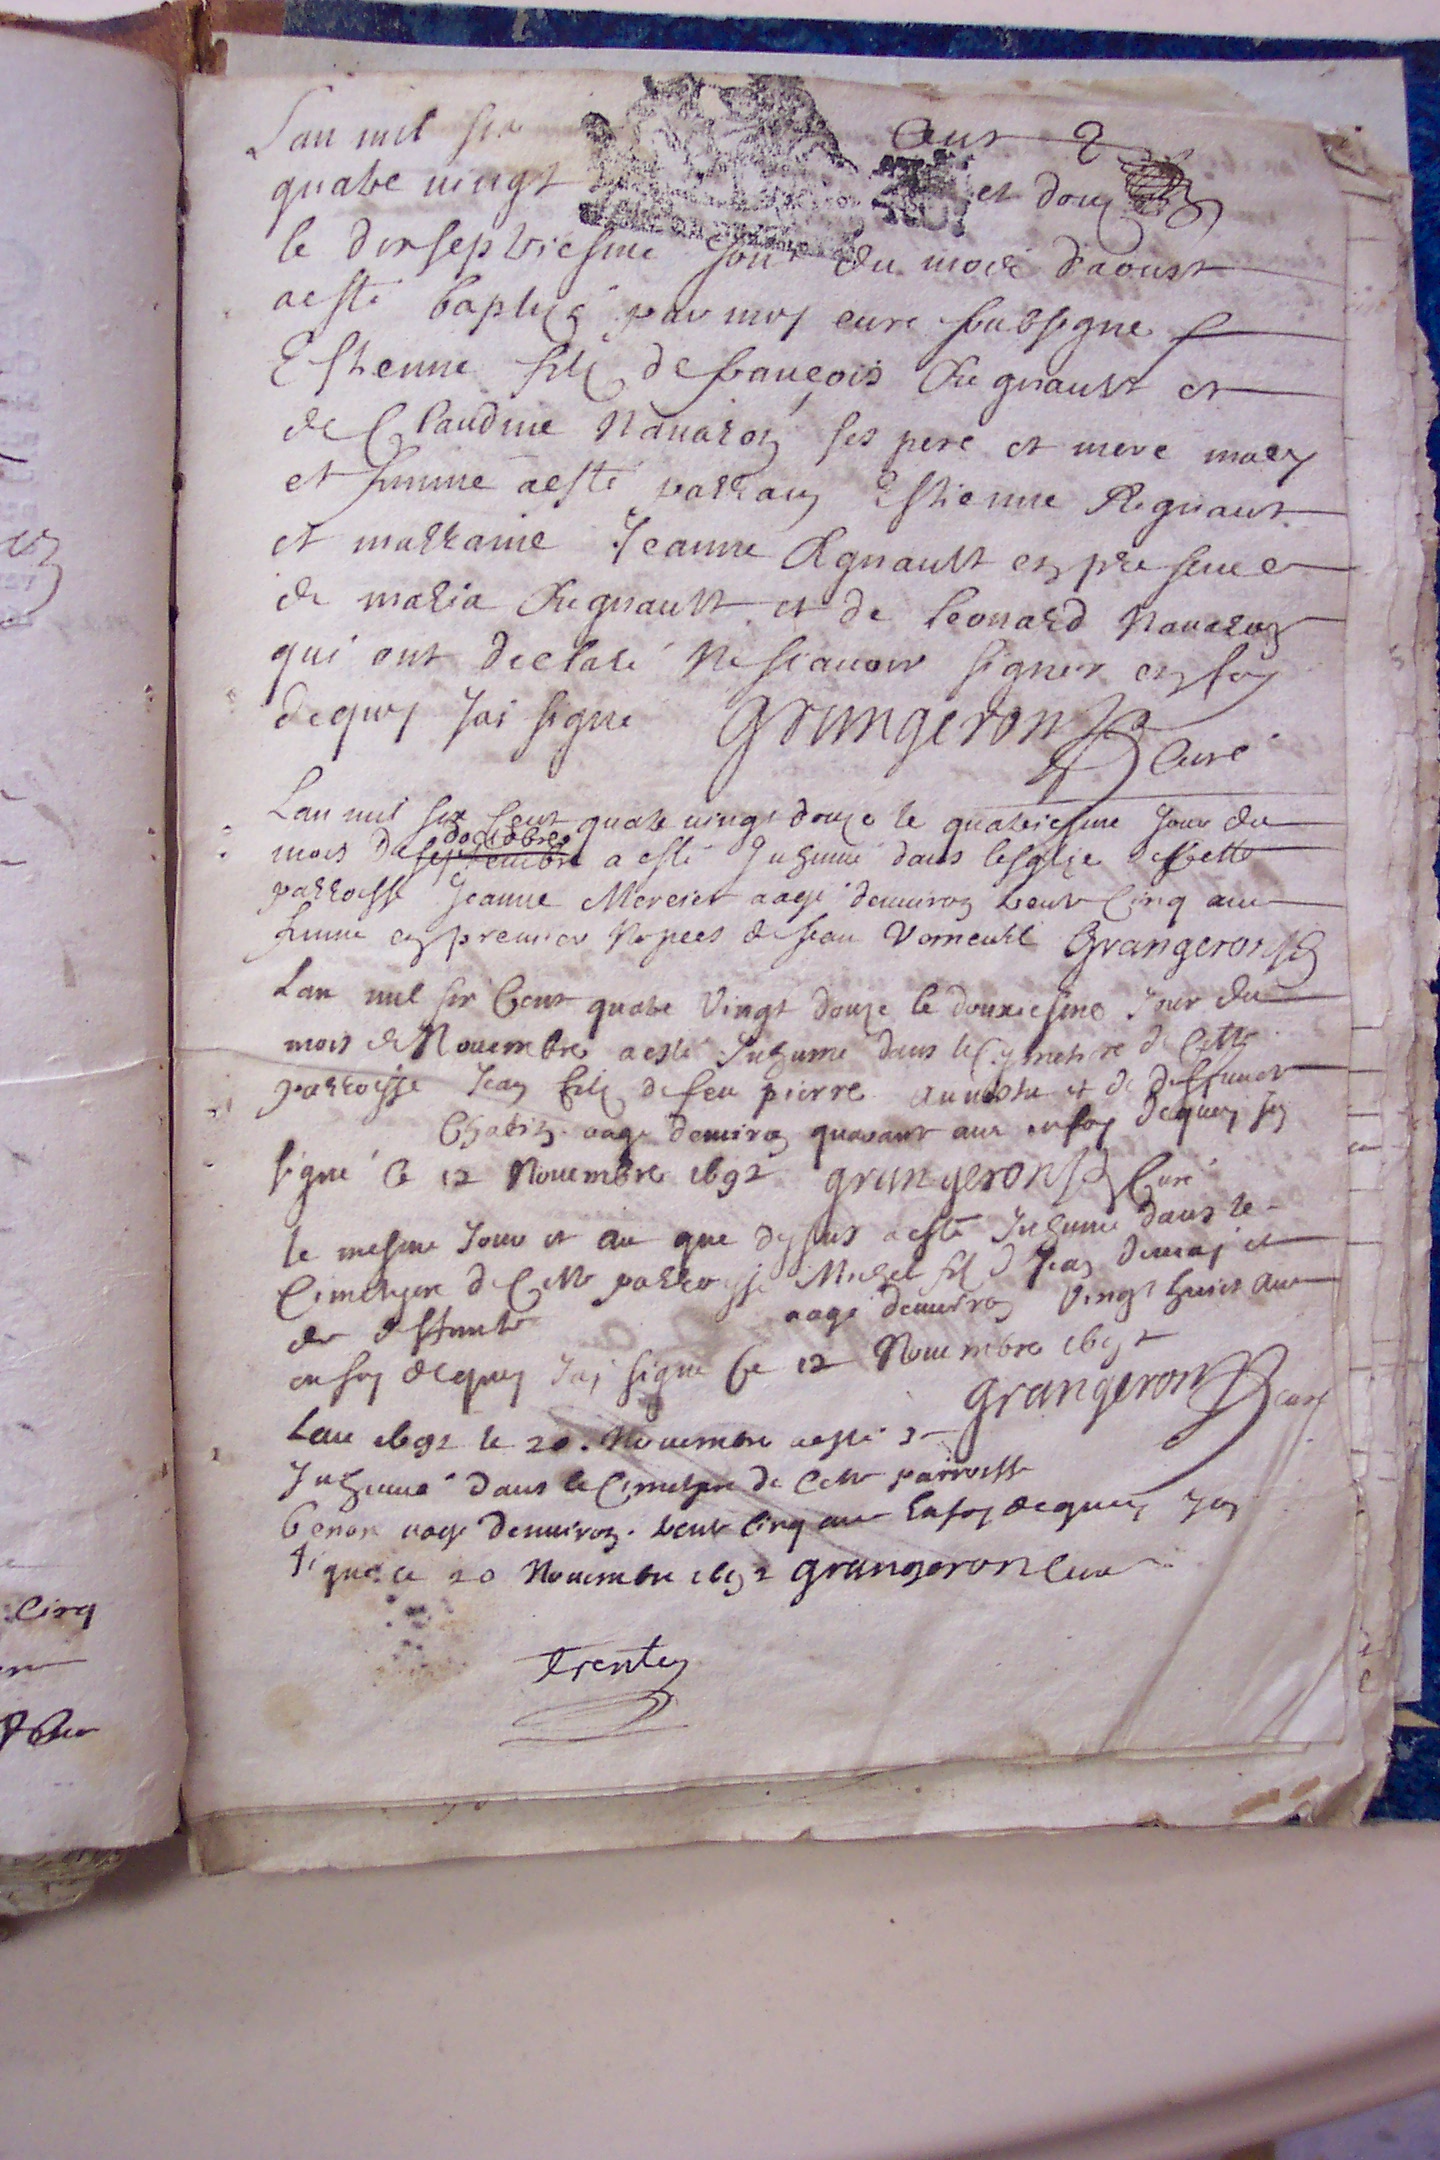 Lan mil six Cent
quatre vingt et douze
le dixseptiesme Jour du mois d'aoust
a esté baptizé par moy curé soubsigne
Estienne filz de françois Regnault et
de Claudine Navaron ses pere et mere mary
et femme a esté parrain Estienne Regnault
et marraine Jeanne Regnault en presence
de maria Regnault et de Leonard Navaron
qui ont declaré ne scavoir signer en foy
dequoy Jai signe Grangeron Curé
Lan mil six Cent quatre vingt douze le quatriesme Jour du
mois de septembre octobre a esté Inhumé dans lesglize de Cette
parroisse Jeanne Mercier aagé denviron trente Cinq ans
femme en premier Nopces de Jean Verneuil Grangeron
Lan mil six Cent quatre Vingt douze le douziesme Jour du
mois de Novembre a esté Inhumé dans le Cymetiere de Cette
parroisse Jean filz de feu pierre et de deffuncte
aagé denviron quarant ans en foy dequoy Jay
signé le 12 Novembre 1692 grangeron Curé
le mesme Jour et an que dessus a esté Inhumé dans le
Cimetyere de Cette parroisse Michel filz de Jean et
de deffuncte aagé denviron Vingt huict ans
en foy dequoy Jay signe le 12 Novembre 1692
grangeron curé
Lan 1692 le 20. Novembre a esté
Inhumé dans le Cimetyere de Cette parroisse
aagé denviron trente Cinq ans En foy dequoy Jay
signé le 20 Novembre 1692 grangeron Curé
trente
Cinq